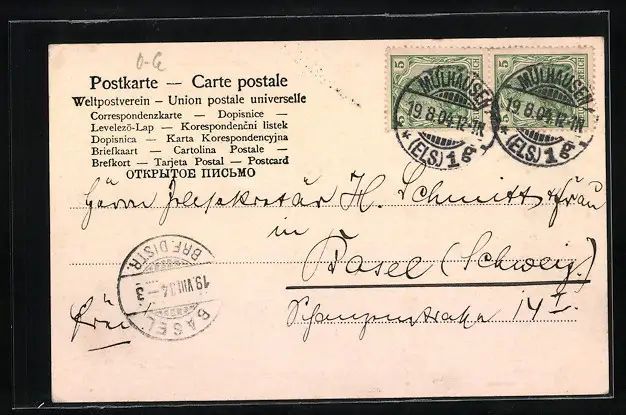 Postkarte — Carte postale
Weltpostverein - Union postale universelle
Correspondenzkarte — Dopisnice —
Levelező-Lap — Korespondenční listek
Dopisnica — Karta Korespondencyjna
Briefkaart — Cartolina Postale —
Brefkort — Tarjeta Postal — Postcard
ОТКРЫТОЕ ПИСЬМО
5 5
MÜLHAUSEN
19.8.04.12-1N.
* (ELS) 1g *
MÜLHAUSEN
19.8.04.12-1N.
* (ELS) 1g *
H. Schmitt & Frau
in
Basel (Schweiz.)
14 I.
BRF. DISTR.
19.VIII.04 — 3
BASEL